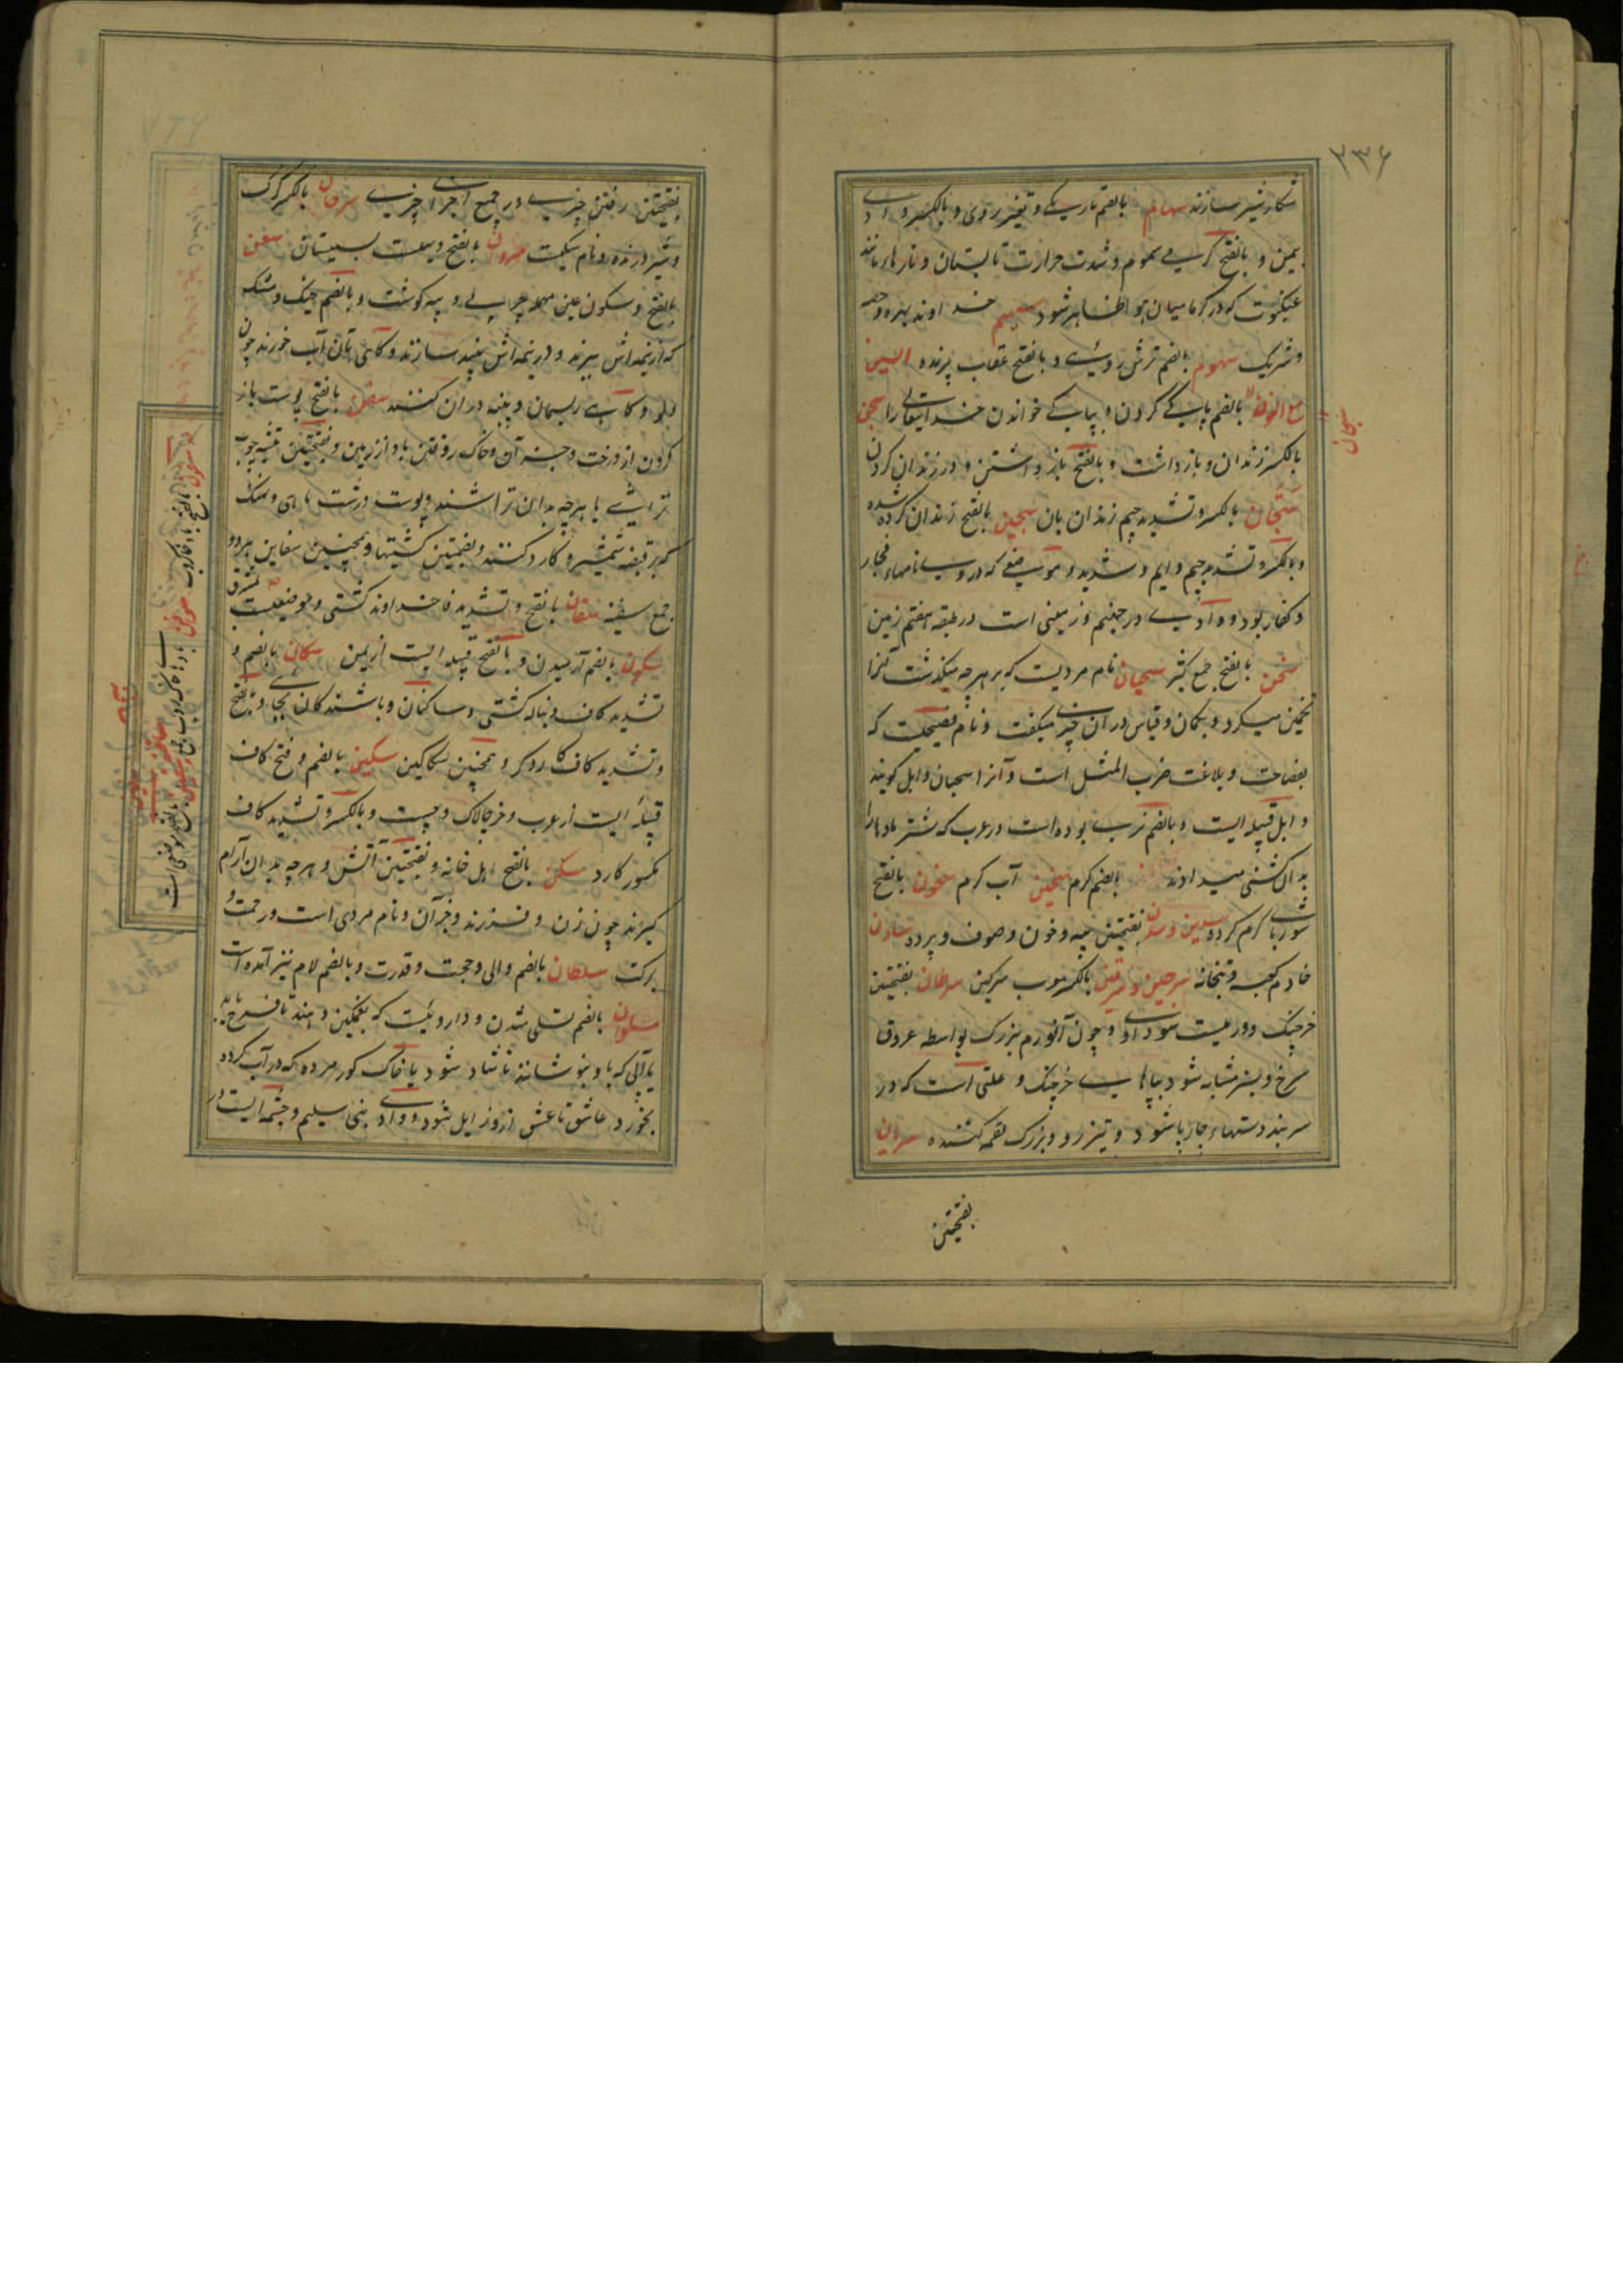 ۳۳۶
شکار شیر سازند سهام بالضم تاریکی و تغییر روی و بالکسر وادی
بیمن و بالفتح گرمی سموم و شدت حرارت تابستان و تارها مانند
عنکبوت که در گرما میان هوا ظاهر شود سهیم خداوند بهره و حصه
و شریک سهوم بالضم ترش رویی و بالفتح عقاب پرنده السین
مع النون بالضم پاکی کردن و بپاکی خواندن خدایتعالی را سجن
سبحان
بالکسر زندان و بازداشت و بالفتح باز داشتن و در زندان کردن
سجان بالکسر و تشدید جیم زندان بان سجین بالفتح زندان کرده شده
و بالکسر و تشدید جیم دایم و شدید و موضعی که در وی نامهاء فجار
و کفار بود و وادیی در جهنم و زمینی است در طبقه هفتم زمین
سحن بالفتح جمع کثیر سحبان نام مردیست که بر هرچه میگذشت آنرا
تخمین میکرد و بگمان و قیاس در آن چیزی میگفت و نام فصیحیست که
بفصاحت و بلاغت ضرب المثل است و آنرا سحبان وایل گویند
و ایل قبیله ایست و بالضم
بدان کشنی میدادند بالضم گرم سخین آب گرم سخون بالفتح
شوربای گرم کرده سدین و سدن بفتحتین پیه و خون و صوف و پرده سادن
خادم کعبه و بتخانه سرجین و سرقین بالکسر معرب سرکین سرطان بفتحتین
خرچنگ و ورمیست سوداوی و چون آنورم بزرگ بواسطه عروق
سرخ و سبز مشابه شود بپاهای خرچنگ و علتی است که در
سر بند دستهاء چارپا شود و تیزرو و بزرگ لقمه کننده سریان
بفتحتین
بفتحتین رفتن چیزی در جمیع اجزای چیزی سرحان بالکسر گرگ
و شیر درنده و نام سگیست سروان بالفتح دیهیست بسیستان سعن
بالفتح و سکون عین مهمله چربی و پیه گوشت و بالضم خیک و مشک
که از نیمه اش ببرند و در نیمه اش نبید سازند و گاهی بآن آب خورند چون
دلو و گاهی ریسمان و پنبه در آن کنند سفن بالفتح پوست باز
کردن از درخت و جز آن و خاک روفتن باد از زمین و بفتحتین تیشه چوب
تراشی یا هرچه بدان تراشند و پوست درشت ماهی و نهنگ
که بر قبضه شمشیر و کارد کنند و بضمتین کشتیها و همچنین سفاین هر دو
جمع سفینه سفان بالفتح و تشدید فا خداوند کشتی و موضعیست بمشرق
سکون بالضم آرمیدن و بالفتح قبیله ایست از یمن سکان بالضم و
تشدید کاف دنباله کشتی و ساکنان و باشندگان بجای و بالفتح
و تشدید کاف کاردگر و همچنین سکاکین سکین بالضم و فتح کاف
قبیله ایست از عرب و خر چالاک و چست و بالکسر و تشدید کاف
مکسور کارد سکن بالفتح اهل خانه و بفتحتین آتش و هرچه بدان آرام
گیرند چون زن و فرزند و جز آن و نام مردی است و رحمت و
برکت سلطان بالضم والی و حجت و قدرت و بالضم لام نیز آمده است
سلوان بالضم تسلی شدن و داروئیست که بغمگین دهند تا فرح یابد
یا آبی که باو بنوشانند تا شاد شود یا خاک گور مرده که در آب کرده
بخورد عاشق تا عشق ازو زایل شود و وادی بنی سلیم و چشمه ایست در